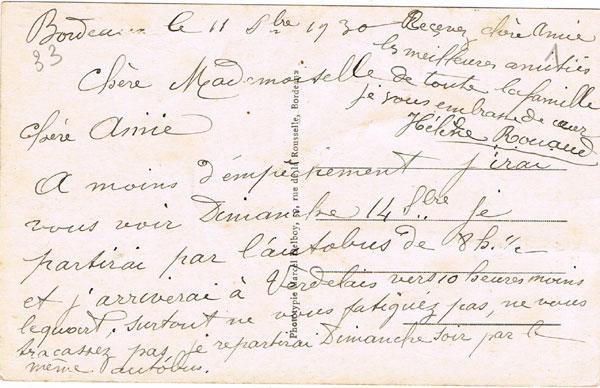 Bordeaux le 11 8bre 1930
33
Chère Mademoiselle
Chère Amie
A moins d'empêchement j'irai
vous voir Dimanche 14 8bre je
partirai par l'autobus de 8h 1/2
et j'arriverai à Verdelais vers 10 heures moins
lequart. surtout ne vous fatiguez pas, ne vous
tracassez pas, je repartirai Dimanche soir par le
même autobus.
Recevez chère Amie
les meilleures amitiés
de toute la famille
je vous embrasse de cœur
Hélène Rouaud
Phototypie Marcel Delboy, rue de la Rousselle, Bordeaux